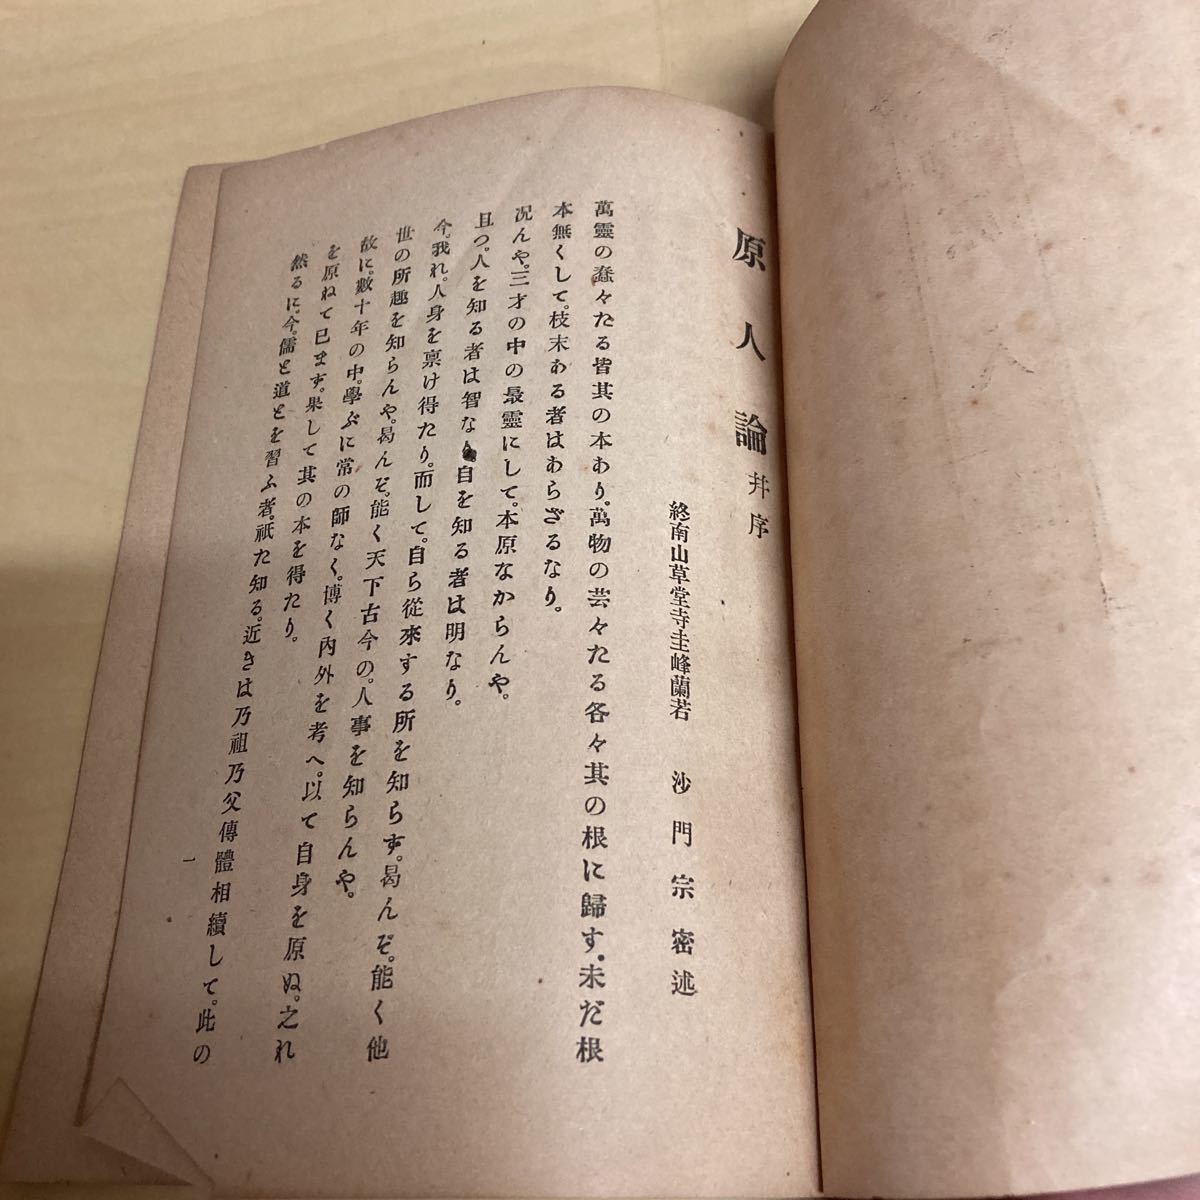 原人論 并序
終南山草堂寺圭峰蘭若 沙門宗密述
萬靈の蠢々たる皆其の本あり。萬物の芸々たる各々其の根に歸す。未だ根
本無くして。枝末ある者はあらざるなり。
况んや。三才の中の最靈にして。本原なからんや。
且つ。人を知る者は智なり。自を知る者は明なり。
今。我れ。人身を禀け得たり。而して。自ら從來する所を知らず。曷んぞ。能く他
世の所趣を知らんや。曷んぞ。能く天下古今の。人事を知らんや。
故に。數十年の中。學ぶに常の師なく。博く內外を考へ。以て自身を原ぬ。之れ
を原ねて已まず。果して其の本を得たり。
然るに。今。儒と道とを習ふ者。祇た知る。近きは乃祖乃父傳體相續して。此の
一